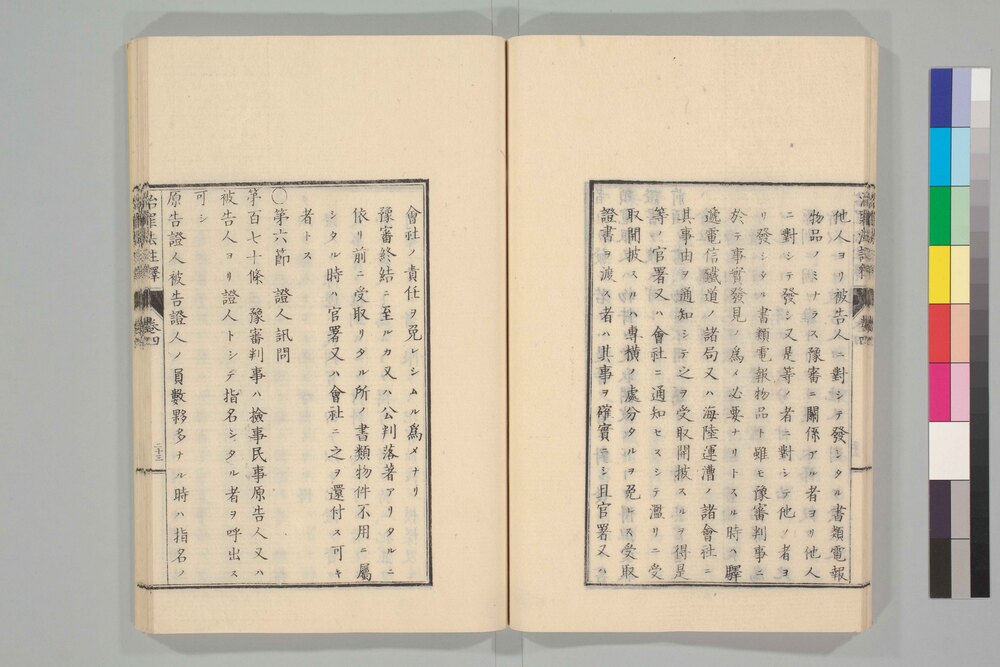 他人ヨリ被告人ニ對シテ發シタル書類電報
物品ノミナラス豫審ニ關係アル者ヨリ他人
ニ對シテ發シ又是等ノ者ニ對シテ他ノ者ヨ
リ發シタル書類電報物品ト雖モ豫審判事ニ
於テ事實發見ノ爲メ必要ナリトスル時ハ驛
遞電信鐵道ノ諸局又ハ海陸運漕ノ諸會社ニ
其事由ヲ通知シテ之ヲ受取開披スルヲ得是
等ノ官署又ハ會社ニ通知セスシテ濫リニ受
取開披スルハ專横ノ處分タルヲ免レス受取
證書ヲ渡ス者ハ其事ヲ確實ニシ且官署又ハ
會社ノ責任ヲ免レシムル爲メナリ
豫審終結ニ至ルカ又ハ公判落著アリタルニ
依リ前ニ受取リタル所ノ書類物件不用ニ屬
シタル時ハ官署又ハ會社ニ之ヲ還付ス可キ
者トス
○第六節 證人訊問
第百七十條 豫審判事ハ撿事民事原告人又ハ
被告人ヨリ證人トシテ指名シタル者ヲ呼出ス
可シ
原告證人被告證人ノ員數夥多ナル時ハ指名ノ
治罪法註釋 卷四 二十三